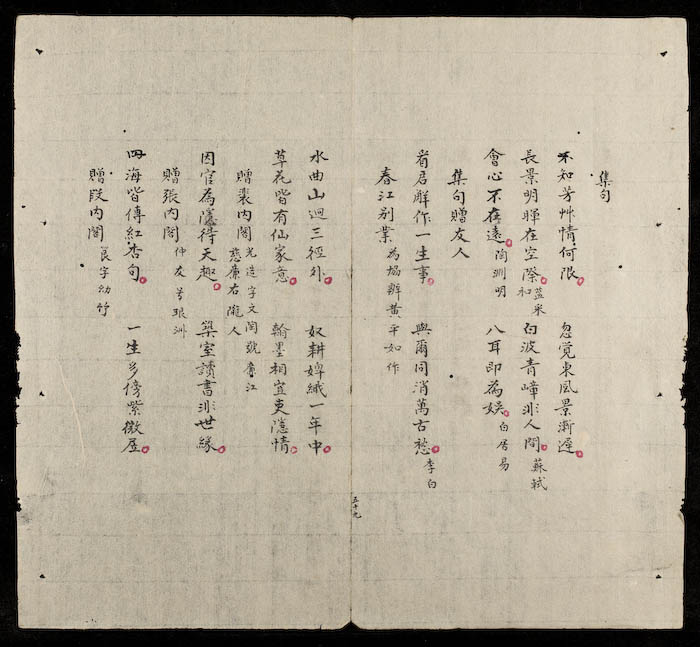 集句
不知芳艸情何限 忽覺東風景漸遲
長景明暉在空際 藍采和 白波青嶂非人間 蘇軾
會心不在遠 陶淵明 入耳即為娛 白居易
集句贈友人
看君解作一生事 與爾同消萬古愁 李白
春江别業 為協辦黃平如作
水曲山迴三徑外 奴耕婢織一年中
草花皆有仙家意 翰墨相宜吏隱情
贈裴内閣 光造字文陶號廉江
慈廉右隴人
因官為隱得天趣 築室讀書非世緣
贈張内閣 仲友号琅洲
四海皆傳紅杏句 一生多傍紫微屋
贈段内閣 字幼竹
五十九